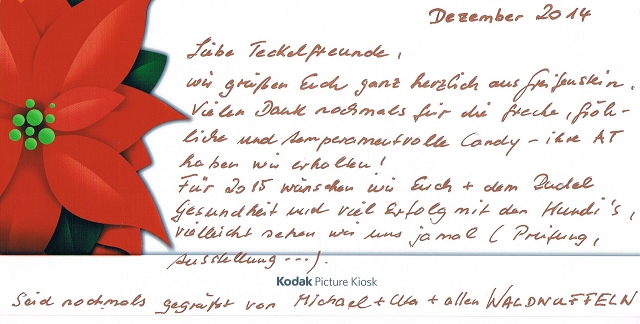 Dezember 2014
Liebe Teckelfreunde,
wir grüßen Euch ganz herzlich aus Greifenstein.
Vielen Dank nochmals für die freche, fröh-
liche und temperamentvolle Candy - ihre AT
haben wir erhalten!
Für 2015 wünschen wir Euch + dem Rudel
Gesundheit und viel Erfolg mit den Hundi's,
vielleicht sehen wir uns ja mal (Prüfung,
Ausstellung ---).
Kodak Picture Kiosk
Seid nochmals gegrüßt von Michael + Uta + allen WALDWUFFELN